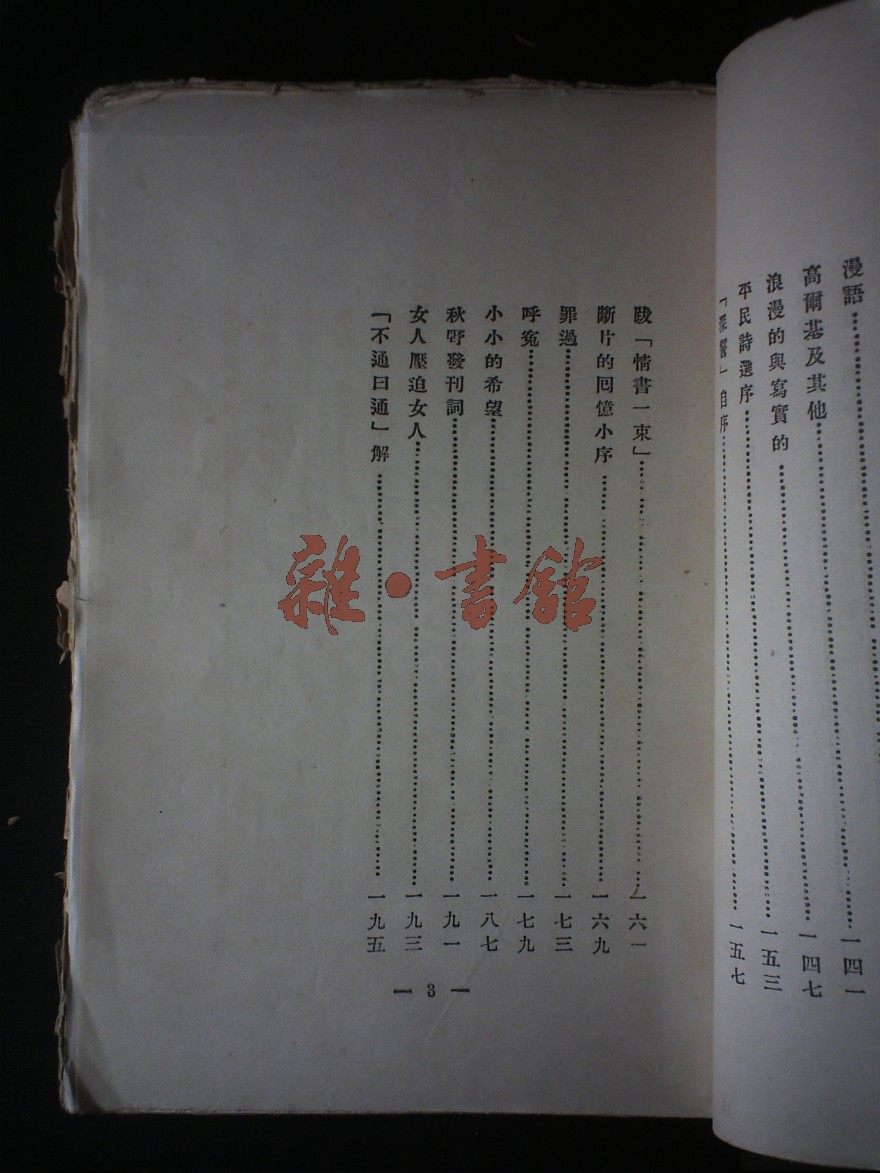 漫語……
高爾基及其他……一四一
浪漫的與寫實的……一四七
平民詩選序……一五三
「深誓」自序……一五七
跋「情書一束」……一六一
斷片的回憶小序……一六九
罪過……一七三
呼冤……一七九
小小的希望……一八七
秋野發刊詞……一九一
女人壓迫女人……一九三
「不通曰通」解……一九五
— 3 —
雜·書館